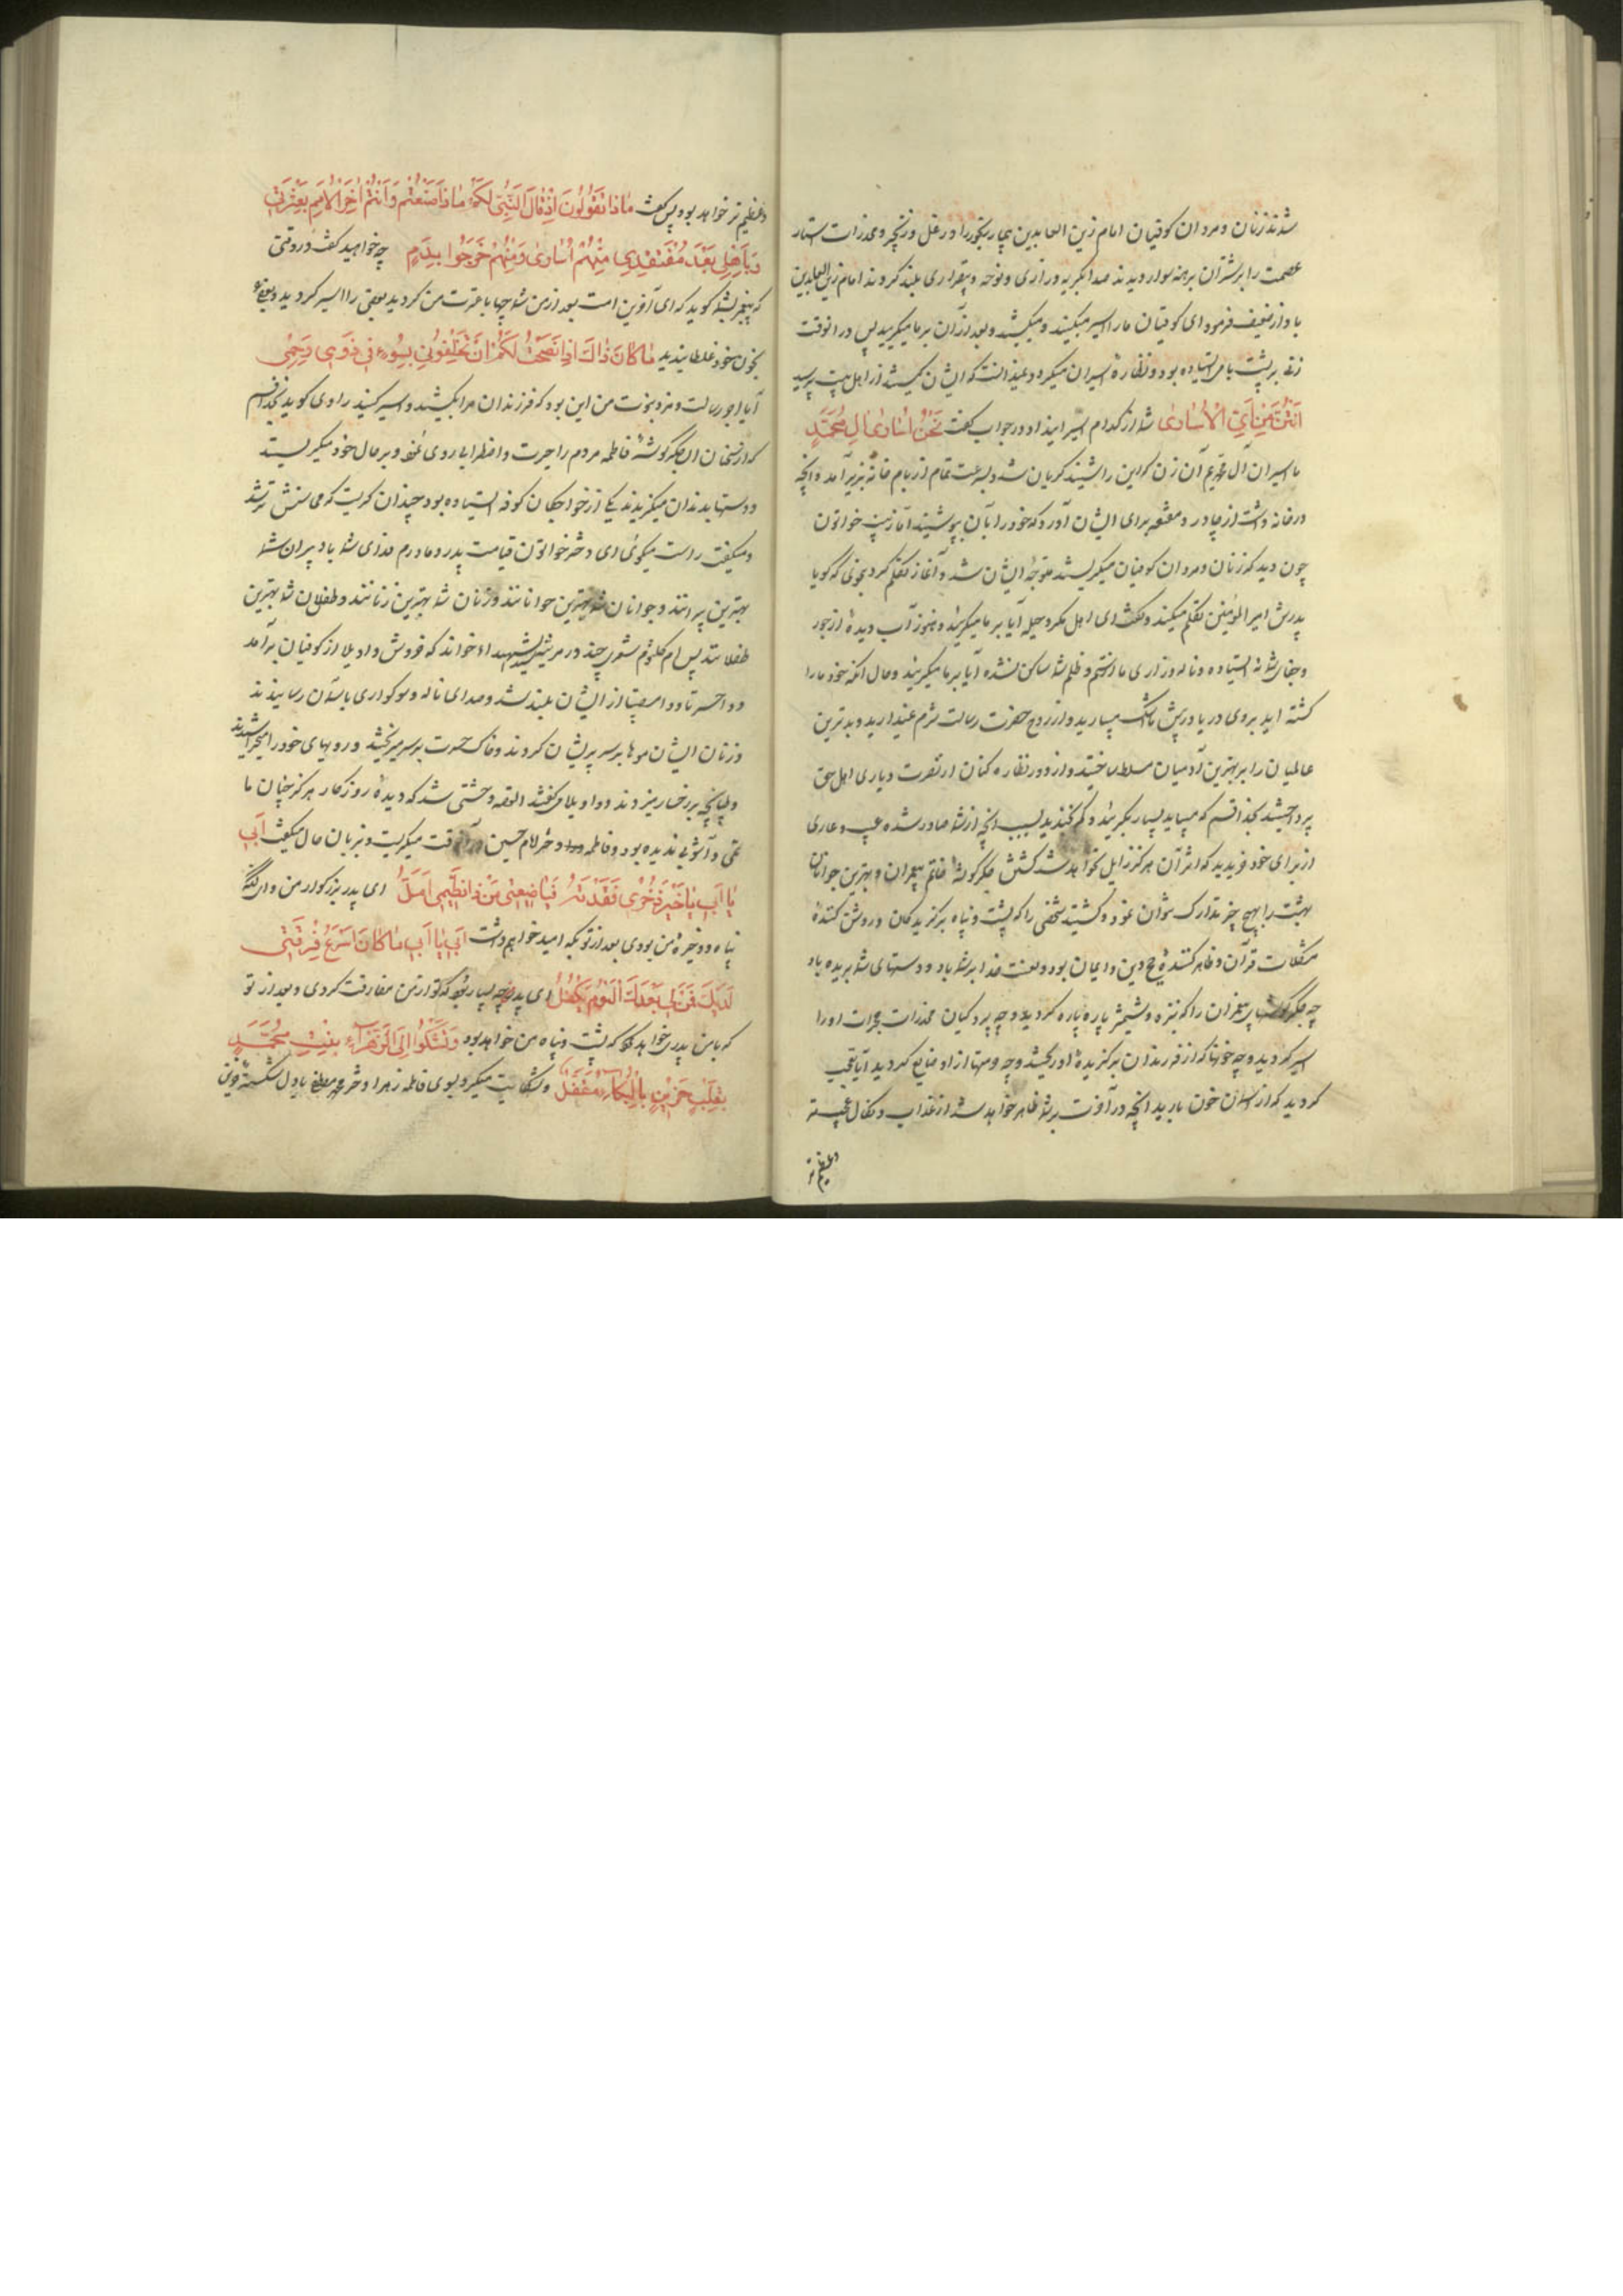 شدند زنان و مردان کوفیان امام زین العابدین بیمار رنجور را در غل و زنجیر و مخدرات ستار
عصمت را بر شتران برهنه سوار دیدند صدا بگریه و زاری و نوحه و بیقراری بلند کردند امام زین العابدین
باواز ضعیف فرمود ای کوفیان ما را اسیر میکنید و میکشید و بعد از آن بر ما میگریید پس در انوقت
زنی بر پشت بامی ایستاده بود و نظاره اسیران میکرد و نمیدانست که ایشان کیستند از اهل بیت پرسید
اَنْتُنَّ مِنْ اَیِّ الْاُسٰاریٰ شما از کدام اسیرانید او در جواب گفت نَحْنُ اُسٰاریٰ الِ مُحَمَّدٍ
ما اسیران آل محمدیم آن زن که این را شنید گریان شد و بسرعت تمام از بام خانه بزیر آمد و آنچه
در خانه داشت از چادر و مقنعه برای ایشان آورد که خود را بآن پوشیدند اما زینب خواتون
چون دید که زنان و مردان کوفیان میگریستند متوجه ایشان شد و آغاز تکلم کرد بنحوی که گویا
پدرش امیر المؤمنین تکلم میکند و گفت ای اهل مکر و حیله آیا بر ما میگریید و هنوز آب دیده از جور
و جفای شما نه ایستاده و ناله و زاری ما از ستم و ظلم شما ساکن نشده آیا بر ما میگریید و حال آنکه خود ما را
کشته اید بروی دریا و ریش اشک میبارید و از روح حضرت رسالت شرم نمیدارید و بدترین
عالمیان را بر بهترین آدمیان مسلط ساختید و از دور نظاره کنان از نصرت و یاری اهل حق
پرداختید بخدا قسم که میباید بسیار بگریید و کم بخندید بسبب آنچه از شما صادر شده عیب و عاری
از برای خود خریدید که اثر آن هرگز زایل نخواهد شد کشتن جگرگوشه خاتم پیغمبران و بهترین جوانان
بهشت را بهیچ چیز تدارک نتوان نمود و کشتید شخصی را که پشت و پناه برگزیدگان و روشن کننده
مشکلات قرآن و ظاهر کننده حج دین و ایمان بود و لعنت خدا بر شما باد و دستهای شما بریده باد
چه جگرگوشهای پیغمبران را که بنیزه و شمشیر پاره پاره کردید و چه پردگیان مخدرات حجرات او را
اسیر کردید و چه خونها که از فرزندان برگزیده او ریختید و چه حرمتها از او ضایع کردید آیا تعجب
کردید که از آسمان خون بارید آنچه در آخرت بر شما ظاهر خواهد شد از عذاب و نکال عجیبتر
و عظیم تر
و عظیم تر خواهد بود پس گفت مٰاذٰا تَقُولُونَ اِذْ قٰالَ النَّبِیُّ لَکُمْ مٰاذٰا صَنَعْتُمْ وَاَنْتُمْ اٰخِرُ الْاُمَمِ بِعِتْرَتی
وَ بِاَهْلی بَعْدَ مُفْتَقَدی مِنْهُمْ اُسٰاریٰ وَمِنْهُمْ ضُرِّجُوا بِدَمٍ چه خواهید گفت در وقتی
که پیغمبر بشما گوید که ای آخرین امت بعد از من شما چها با عترت من کردید بعضی را اسیر کردید و بعضی
بخون خود غلطانیدید مٰا کٰانَ ذٰاکَ اِذٰا نَصَحْتُ لَکُمْ اَنْ تَخْلُفُونی بِسُوءٍ فی ذَوی رَحِمی
آیا اجر رسالت و مزد نبوت من این بود که فرزندان مرا بکشید و اسیر کنید راوی گوید بخدا قسم
که از سخنان آن جگرگوشه فاطمه مردم را حیرت و اضطرابا روی نمود و بر حال خود میگریستند
و دستها بدندان میگزیدند یکی از خواجگان کوفه ایستاده بود چندان گریست که محاسنش تر شد
و میگفت راست میگوئی ای دختر خواتون قیامت پدر و مادرم فدای شما باد پیران شما
بهترین پیرانند و جوانان شما بهترین جوانانند و زنان شما بهترین زنانند و طفلان شما بهترین
طفلانند پس ام کلثوم شعری چند در مرثیه سید الشهداء خواند که خروش و اویلا از کوفیان برآمد
و وا حسرتا و وا مصیبتا از ایشان بلند شد و صدای ناله و سوگواری بآسمان رسانیدند
و زنان ایشان موها بر سر پریشان کردند و خاک حسرت بر سر میریختند و رویهای خود را میخراشیدند
و طپانچه بر رخسار میزدند و واویلا میگفتند القصه وحشتی شد که دیده روزگار هرگز چنان ما
تمی و آشوبی ندیده بود و فاطمه دختر امام حسین در آنوقت میگریست و بزبان حال میگفت اَبی
یٰا اَبی یٰا خَیْرَ ذُخْری فَقَدْتُهُ فَیٰا ضَیْعَتی مَنْ ذٰا لِضَیْمی اُمِّلُ ای پدر بزرگوار من و ای آنکه
پناه و ذخیره من بودی بعد از تو بکه امید خواهم داشت اَبی یٰا اَبی مٰا کٰانَ اَسْرَعَ فُرْقَتی
لَدَیْکَ فَمَنْ لی بَعْدَکَ الْیَوْمَ یَکْفُلُ ای پدر چه بسیار زود که تو از من مفارقت کردی و بعد از تو
که با من پدری خواهد کرد که پشت و پناه من خواهد بود وَتَشْکُوا اِلَی الزَّهْرٰآءِ بِنْتِ مُحَمَّدٍ
بِقَلْبٍ حَزینٍ بِالْبُکٰاءِ مُقْفَلُ و شکایت میکرد بسوی فاطمه زهرا دختر محمد مصطفی با دل شکسته حزین